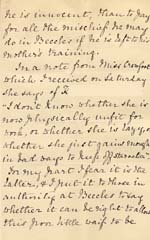 he is innocent, than to pay
for all the mischief he may
do in Beccles if he is left to his
mother's training.
In a note from Miss
which I received on Saturday
she says of
"I don't know whether she is
now physically unfit for
work, or whether she is lazy or
whether she just gains enough
in bad ways to keep
For my part I fear it is the
latter, & I put it to those in
authority at Beccles to say
whether it can be right to allow
this poor little waif to be